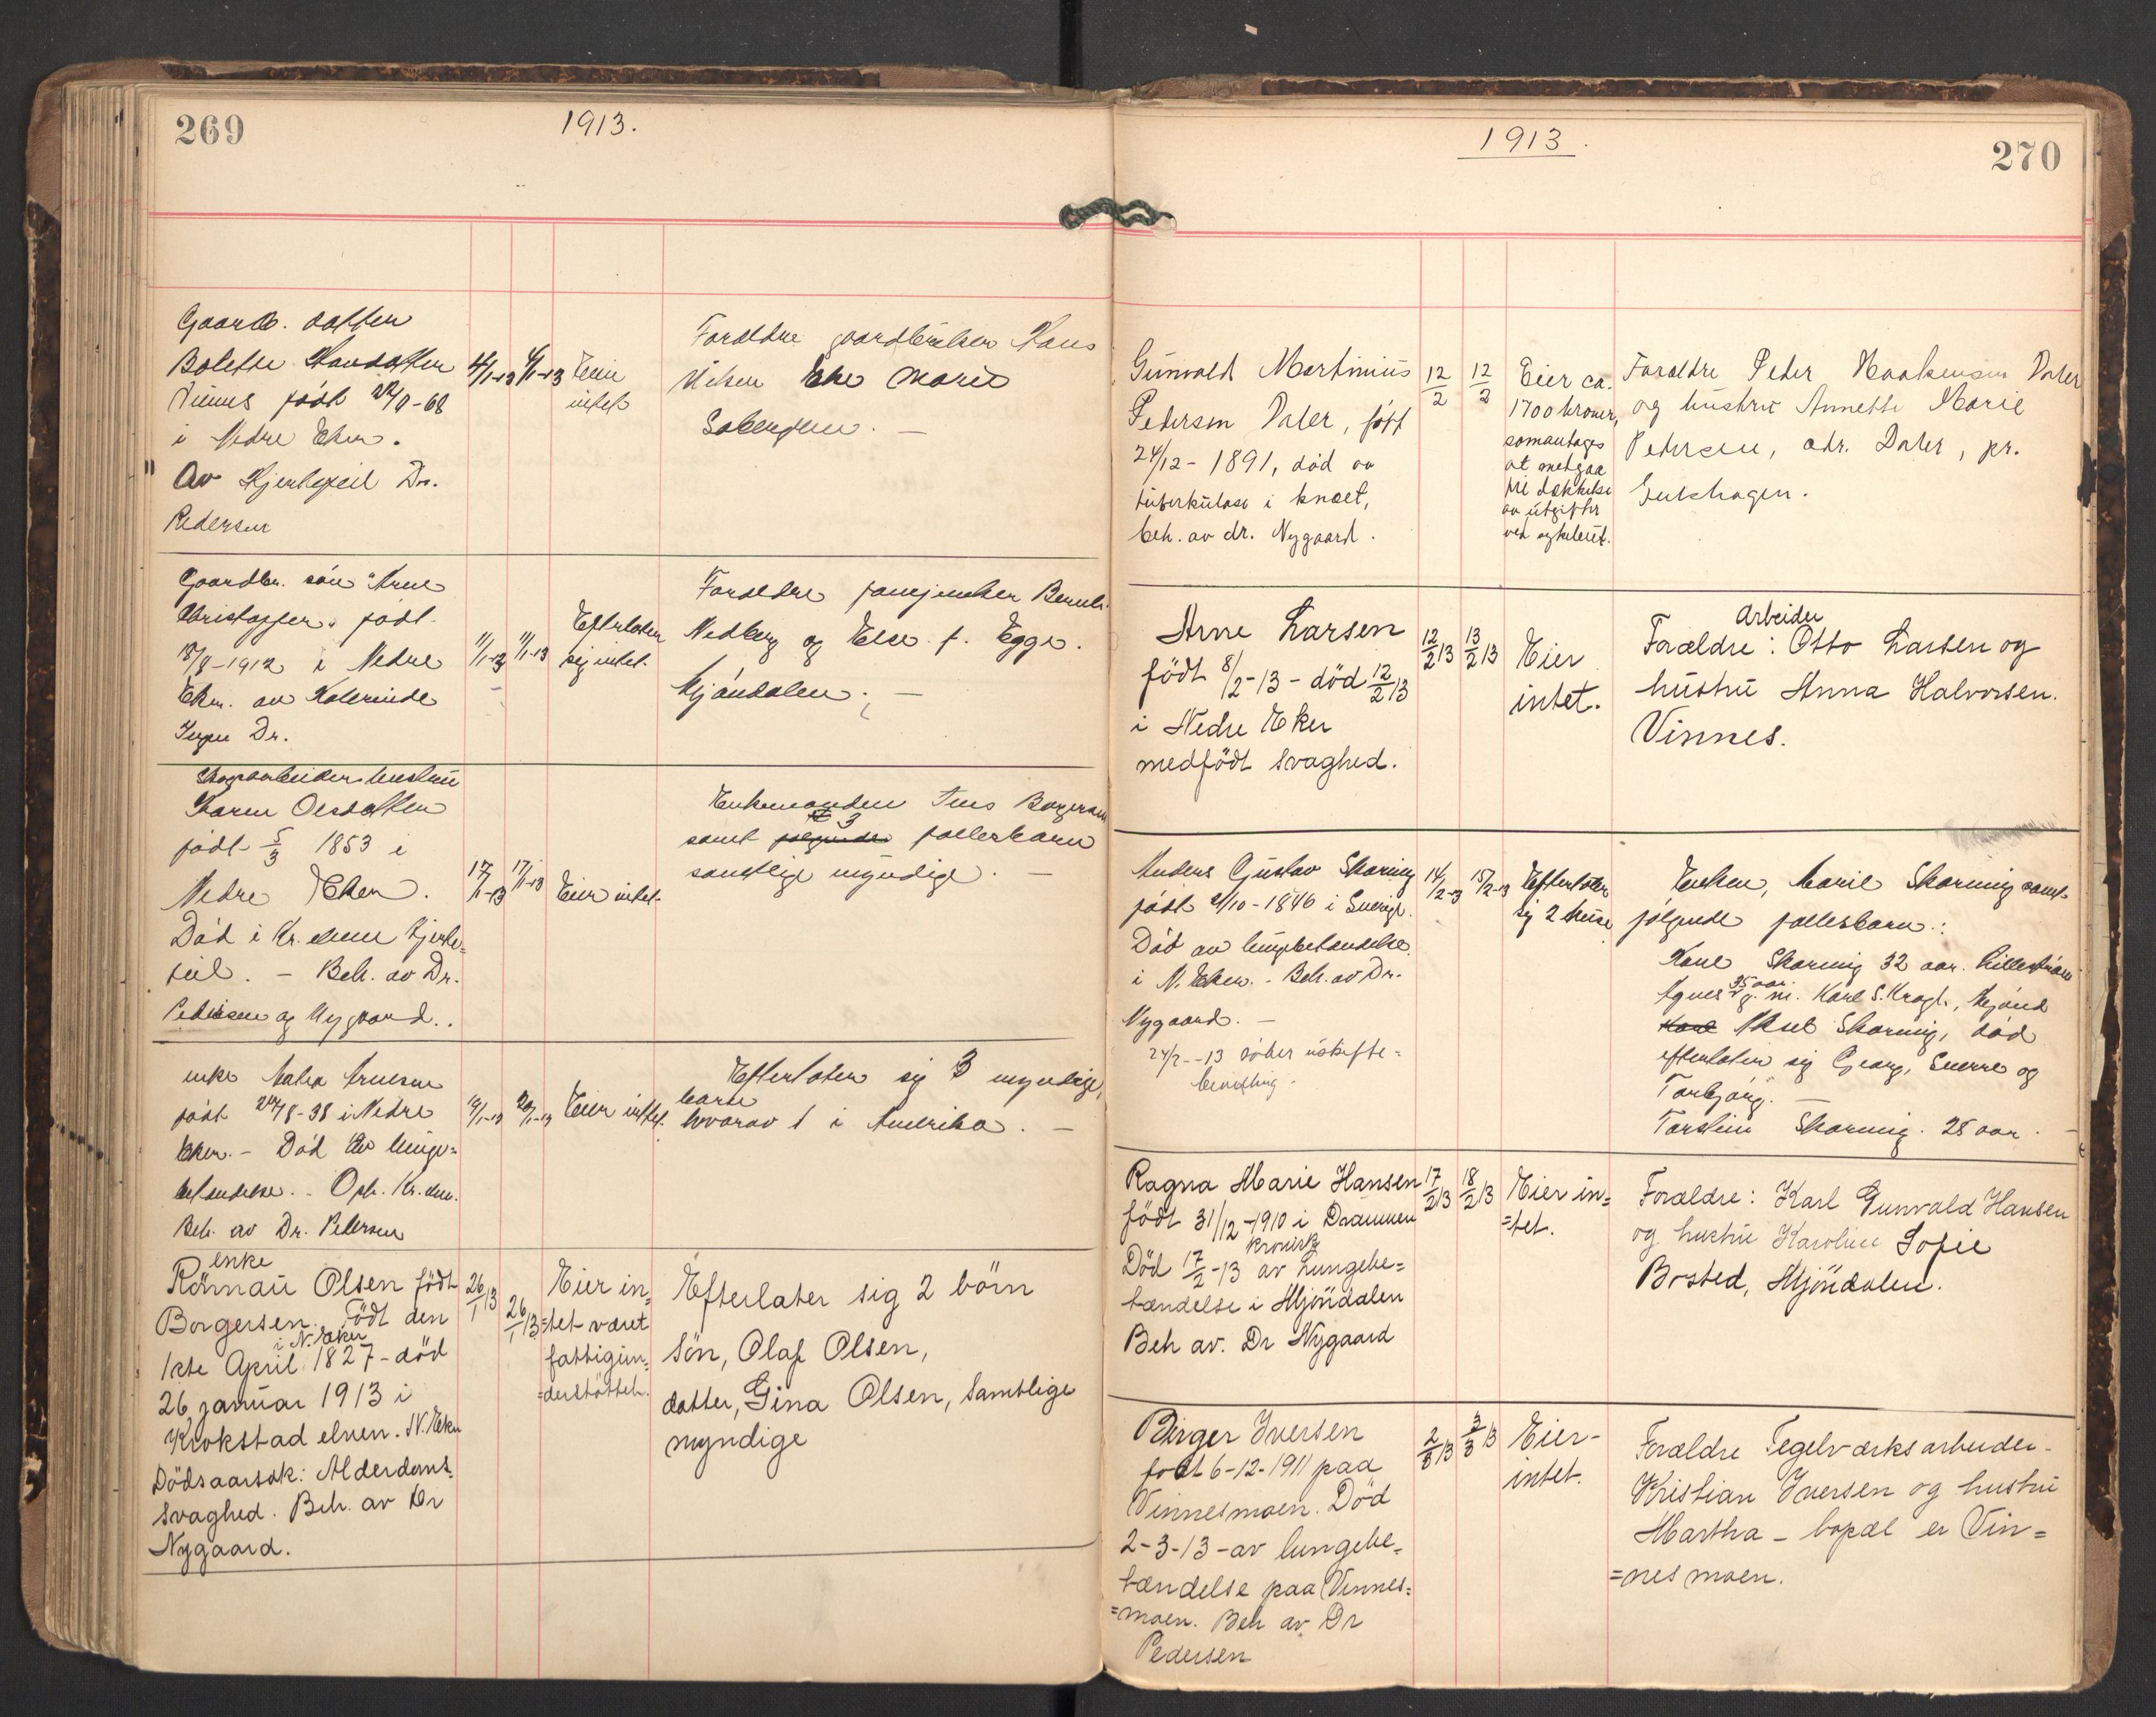 269
1913.
Gaardb. datter
Bolette Hansdatter
Vinnes född 22/9-68
i Nedre Eker.
Av Hjertefeil Dr.
Pedersen
4/1-13
6/1-13
Eier
intet
Forældre gaardbruker Hans
Nilsen Eke Marie
Gaardbr. sön "Arne
Kristoffer" född
18/8-1912 i Nedre
Eker. av
Dr.
11/1-13
11/1-13
Efterlater
sig intet.
Forældre
Nedberg og Else f. Egge.
Mjöndalen.
Skogarbeider hustru
Karen Olesdatter
född 5/3 1853 i
Nedre Eker.
Död i Kr. elven hjerte=
feil. - Beh. av Dr.
Pedersen og Nygaard.
17/1-13
17/1-13
Eier intet.
Enkemanden Jens Borgersen
samt følgende 3 fællesbarn
samtlige myndige. -
enke Maren Arnesen
född 24/8-38 i Nedre
Eker. - Död av lunge=
betændelse. - Oph. Kr. elven.
Beh. av Dr. Pedersen
19/1-13
20/1-13
Eier intet.
Efterlater sig 3 myndige
barn
hvorav 1 i Amerika. -
enke
Rönnau Olsen född
Borgersen. Född den
i N. Eker
1ste April 1827 - död
26 januar 1913 i
Krokstad elven. N. Eker
Dödsaarsak: Alderdoms=
svaghed. Beh. av Dr
Nygaard.
26/1 13
26/1 13
Eier in=
=tet været
fattigun=
=derstöttet.
Efterlater sig 2 börn
Sön, Olaf Olsen,
datter, Gina Olsen, samtlige
myndige
1913.
270
Gunvald Martinius
Pedersen Daler, född
24/12 - 1891, död av
tuberkulose i knæet,
beh. av dr. Nygaard.
12/2
12/2
Eier ca.
1700 kroner,
som antages
at medgaa
til dækkelse
av utgifter
ved sykeleiet.
Forældre Peder Haakensen Daler
og hustru Annette Marie
Pedersen, adr. Daler, pr.
Gulskogen.
Arne Larsen
födt 8/2-13 - död 12/2 13
i Nedre Eker
medfödt svaghed.
12/2 13
13/2 13
Eier
intet.
Arbeider
Forældre: Otto Larsen og
hustru Anna Halvorsen.
Vinnes.
Anders Gustav Skarning
född 21/10-1846 i Sverige.
Död av lungebetændelse
i N. Eker. - Beh. av Dr.
Nygaard. -
24/2 - 13 söker uskifte=
bevilling.
14/2-13
15/2-13
Efterlater
sig 2 huse
Enken, Marie Skarning samt
følgende fællesbarn:
Karl Skarning 32 aar. Lilleström
35 aar.
Agnes g. m. Karl S. Kragh, Mjönd
Karl Aksel Skarning, död
efterlater sig Georg, Sverre og
Torbjörg.
Torstein Skarning. 28 aar.
Ragna Marie Hansen
födt 31/12-1910 i Drammen
kronisk
Död 17/2-13 av Lungebe=
tændelse i Mjöndalen
Beh av. Dr Nygaard
17/2 13
18/2 13
Eier in=
=tet.
Forældre: Karl Gunvald Hansen
og hustru Karoline Sofie
Brsted, Mjöndalen.
Birger Iversen
född 6-12-1911 paa
Vinnesmoen. Död
2-3-13 - av lungebe=
tændelse paa Vinnes=
=moen. Beh av Dr
Pedersen
2/3 13
3/3 13
Eier-
intet.
Forældre Tegelværksarbeider-
Kristian Iversen og hustru
Martha - bopæl er Vin=
=nesmoen.